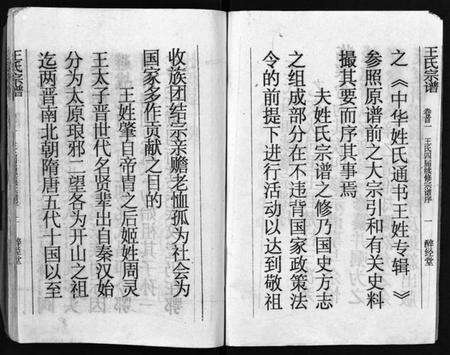 王氏宗谱
卷首一
王氏四届续修宗谱序
一
醉经堂
之《中华姓氏通书王姓专辑》
参照原谱前之大宗引和有关史料
撮其要而序其事焉
夫姓氏宗谱之修乃国史方志
之组成部分在不违背国家政策法
令的前提下进行活动以达到敬祖
收族团结宗亲赡老恤孤为社会为
国家多作贡献之目的
王姓肇自帝胄之后姬姓周灵
王太子晋世代名贤辈出自秦汉始
分为太原琅邪二望各为开山之祖
迄两晋南北朝隋唐五代十国以至
王氏宗谱
醉经堂